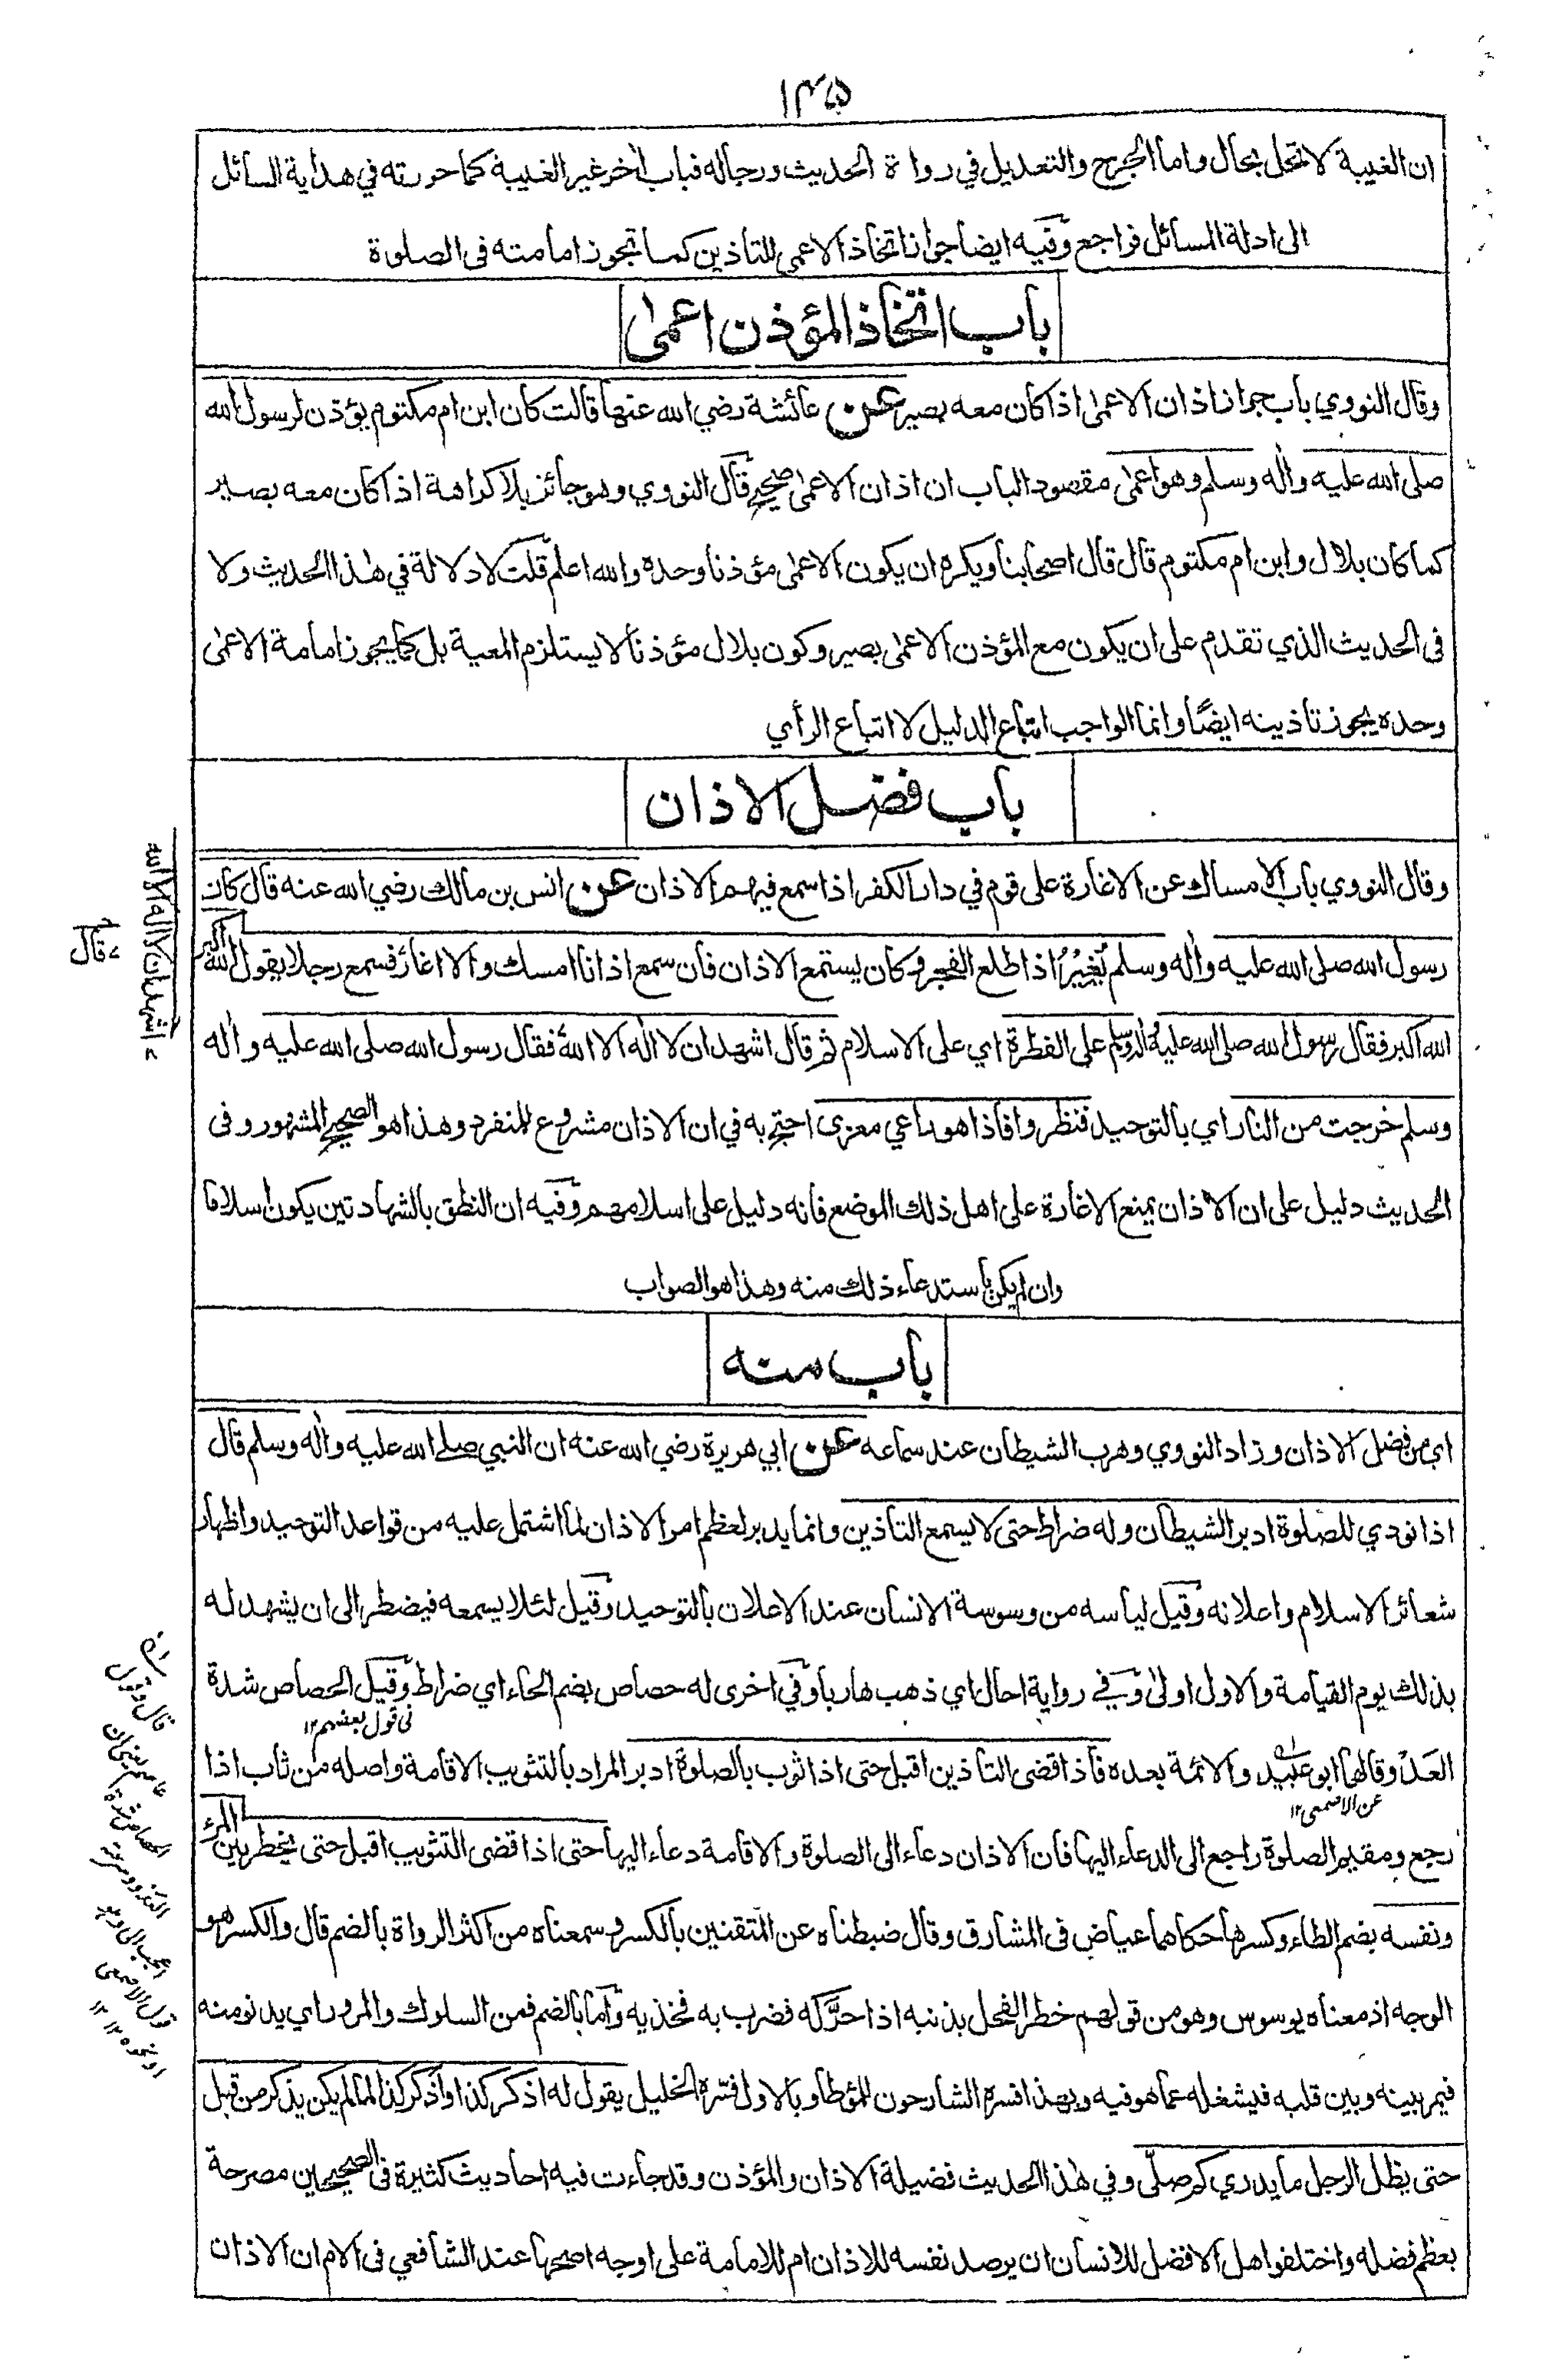 ١٣٥
ان الغيبة لا تحل بحال واما الجرح والتعديل في رواة الحديث ورجاله فباب اٰخر غير الغيبة كما حررته في هداية السائل
الى ادلة المسائل فراجع وفيه ايضا جواز اتخاذ الاعمى للتأذين كما تجوز امامته فى الصلوة
باب اتخاذ المؤذن اعمىٰ
وقال النووي باب جواز اذان الاعمىٰ اذا كان معه بصير عن عائشة رضي الله عنها قالت كان ابن ام مكتوم يؤذن لرسول الله
صلى الله عليه واٰله وسلم وهو اعمىٰ مقصود الباب ان اذان الاعمىٰ صحيح قال النووي وهو جائز بلا كراهة اذا كان معه بصير
كما كان بلال وابن ام مكتوم قال قال اصحابنا ويكره ان يكون الاعمىٰ مؤذنا وحده والله اعلم قلت لا دلالة في هٰذا الحديث ولا
فى الحديث الذي تقدم على ان يكون مع المؤذن الاعمىٰ بصير وكون بلال مؤذنا لا يستلزم المعية بل كما يجوز امامة الاعمىٰ
وحده يجوز تأذينه ايضًا وانما الواجب اتباع الدليل لا اتباع الرأي
باب فضل الاذان
وقال النووي باب الامساك عن الاغارة على قوم في دار الكفر اذا سمع فيهم الاذان عن انس بن مالك رضي الله عنه قال كان
رسول الله صلى الله عليه واٰله وسلم يُغِيْرُ اذا طلع الفجر وكان يستمع الاذان فان سمع اذانا امسك والا اغار فسمع رجلا يقول الله اكبر
الله اكبر فقال رسول الله صلى الله عليه واٰله وسلم على الفطرة اي على الاسلام ثم قال اشهد ان لا اله الا الله فقال رسول الله صلى الله عليه واٰله
ثم قال
اشهد ان لا اله الا الله
وسلم خرجت من النار اي بالتوحيد فنظروا فاذا هو راعي معزى احتج به في ان الاذان مشروع للمنفرد وهذا هو الصحيح المشهور وفى
الحديث دليل على ان الاذان يمنع الاغارة على اهل ذلك الموضع فانه دليل على اسلامهم وفيه ان النطق بالشهادتين يكون اسلاما
وان لم يكن باستدعاء ذلك منه وهذا هو الصواب
باب منه
اي من فضل الاذان وزاد النووي وهرب الشيطان عند سماعه عن ابي هريرة رضي الله عنه ان النبي صلى الله عليه واٰله وسلم قال
اذا نودي للصلوة ادبر الشيطان وله ضراط حتى لا يسمع التأذين وانما يدبر لعظم امر الاذان لما اشتمل عليه من قواعد التوحيد واظهار
شعائر الاسلام واعلانه وقيل ليأسه من وسوسة الانسان عند الاعلان بالتوحيد وقيل لئلا يسمعه فيضطر الى ان يشهد له
بذلك يوم القيامة والاول اولىٰ وفي رواية احال اي ذهب هاربا وفي اخرى له حصاص بضم الحاء اي ضراط وقيل الحصاص شدة
فى قول بعضهم ١٢
العَدْو قالها ابو عبيد والائمة بعده فاذا قضى التأذين اقبل حتى اذا ثوب بالصلوة ادبر المراد بالتثويب الاقامة واصله من ثاب اذا
عن الاصمعى ١٢
رجع ومقيم الصلوة راجع الى الدعاء اليها فان الاذان دعاء الى الصلوة والاقامة دعاء اليها حتى اذا قضى التثويب اقبل حتى يخطر بين المرء
ونفسه بضم الطاء وكسرها حكاهما عياض فى المشارق وقال ضبطناه عن المتقنين بالكسر وسمعناه من اكثر الرواة بالضم قال والكسر هو
الوجه اذ معناه يوسوس وهو من قولهم خطر الفحل بذنبه اذا حرَّكه فضرب به فخذيه واما بالضم فمن السلوك والمرور اي يدنو منه
فيمر بينه وبين قلبه فيشغله عما هو فيه وبهذا فسره الشارحون للمؤطا وبالاول فسّره الخليل يقول له اذكر كذا واذكر كذا لما لم يكن يذكر من قبل
حتى يظل الرجل ما يدري كم صلّى وفي هٰذا الحديث فضيلة الاذان والمؤذن وقد جاءت فيه احاديث كثيرة فى الصحيحين مصرحة
بعظم فضله واختلفوا هل الافضل للانسان ان يرصد نفسه للاذان ام للامامة على اوجه اصحها عند الشافعي فى الام ان الاذان